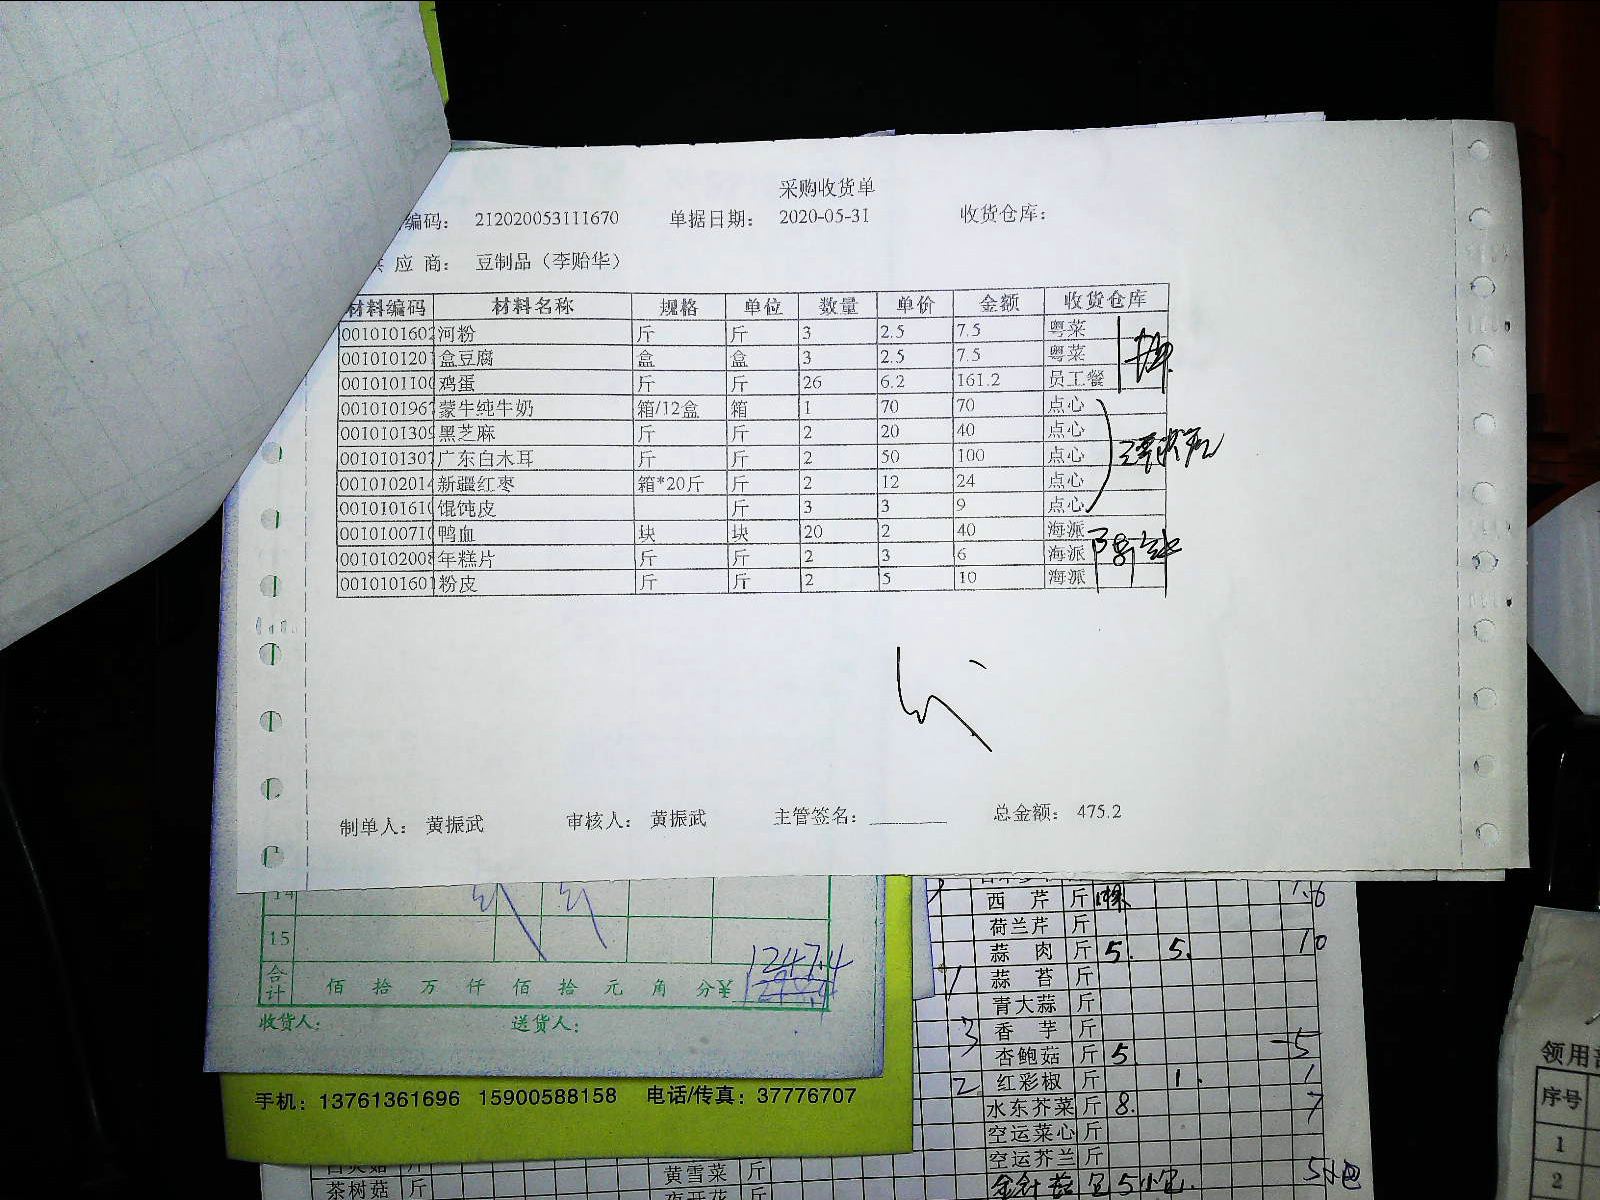 采购收货单
编码： 212020053111670 单据日期： 2020-05-31 收货仓库：
供 应 商： 豆制品（李贻华）
材料编码 材料名称 规格 单位 数量 单价 金额 收货仓库
0010101602 河粉 斤 斤 3 2.5 7.5 粤菜
0010101201 盒豆腐 盒 盒 3 2.5 7.5 粤菜
0010101100 鸡蛋 斤 斤 26 6.2 161.2 员工餐
0010101967 蒙牛纯牛奶 箱/12盒 箱 1 70 70 点心
0010101309 黑芝麻 斤 斤 2 20 40 点心
0010101307 广东白木耳 斤 斤 2 50 100 点心
0010102014 新疆红枣 箱*20斤 斤 2 12 24 点心
0010101610 馄饨皮 斤 3 3 9 点心
0010100710 鸭血 块 块 20 2 40 海派
0010102008 年糕片 斤 斤 2 3 6 海派
0010101601 粉皮 斤 斤 2 5 10 海派
制单人： 黄振武 审核人： 黄振武 主管签名： 总金额： 475.2
14
15
合计 佰 拾 万 仟 佰 拾 元 角 分¥ 1247.4
收货人： 送货人：
手机：13761361696 15900588158 电话/传真：37776707
西 芹 斤 1.6
荷兰芹 斤
蒜 肉 斤 5. 5. 10
1 蒜 苔 斤
青大蒜 斤
3 香 芋 斤
杏鲍菇 斤 5 5
2 红彩椒 斤 1. 1
水东芥菜 斤 8. 7
空运菜心 斤
空运芥兰 斤
金针菇 包 5小包. 5小包
茶树菇 斤
黄雪菜 斤
夜开花 斤
领用
序号
1
2